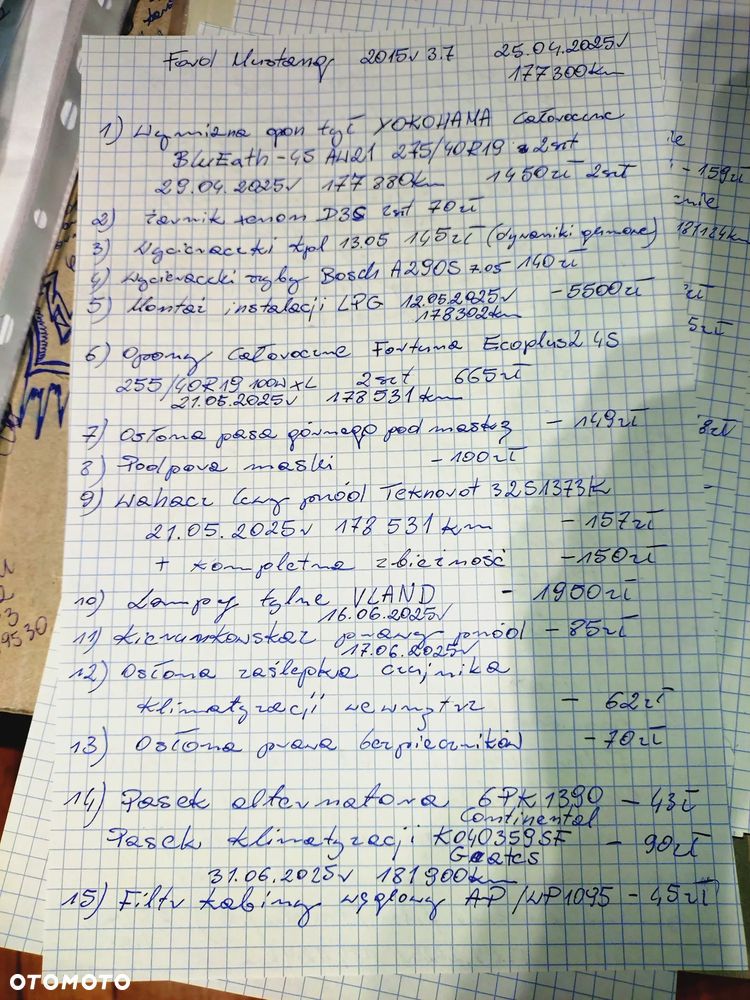 Ford Mustang 2015r 3.7 25.04.2025r
177300km
1) Wymiana opon tył YOKOHAMA Całoroczne
BluEath-4S AW21 275/40R19 2szt
29.04.2025r 177 880km 1450zł 2szt
2) żarnik xenon D3S 2szt 70zł
3) Wycieraczki kpl 13.05 145zł (dywaniki gumowe)
4) Wycieraczki szyby Bosch A290S 7.05 140zł
5) Montaż instalacji LPG 12.05.2025r - 5500zł
178302km
6) Opony Całoroczne Fortuna Ecoplus2 4S
255/40R19 100W XL 2szt 665zł
21.05.2025r 178 531 km
7) Osłona pasa górnego pod maską - 149zł
8) Podpora maski - 100zł
9) Wahacz lewy przód Teknorot 32S1373K
21.05.2025r 178 531 km - 157zł
+ kompletna zbieżność - 150zł
10) Lampy tylne VLAND - 1900zł
16.06.2025r
11) Kierunkowskaz prawy przód - 85zł
17.06.2025r
12) Osłona zaślepka czujnika
klimatyzacji wewnątrz - 62zł
13) Osłona prawa bezpieczników - 70zł
14) Pasek alternatora 6PK1390 - 43zł
Continental
Pasek klimatyzacji K040359SF - 90zł
Gates
31.06.2025r 181 900km
15) Filtr kabiny węglowy AP/WP1095 - 45zł
- 159zł
181124km
9530
OTOMOTO